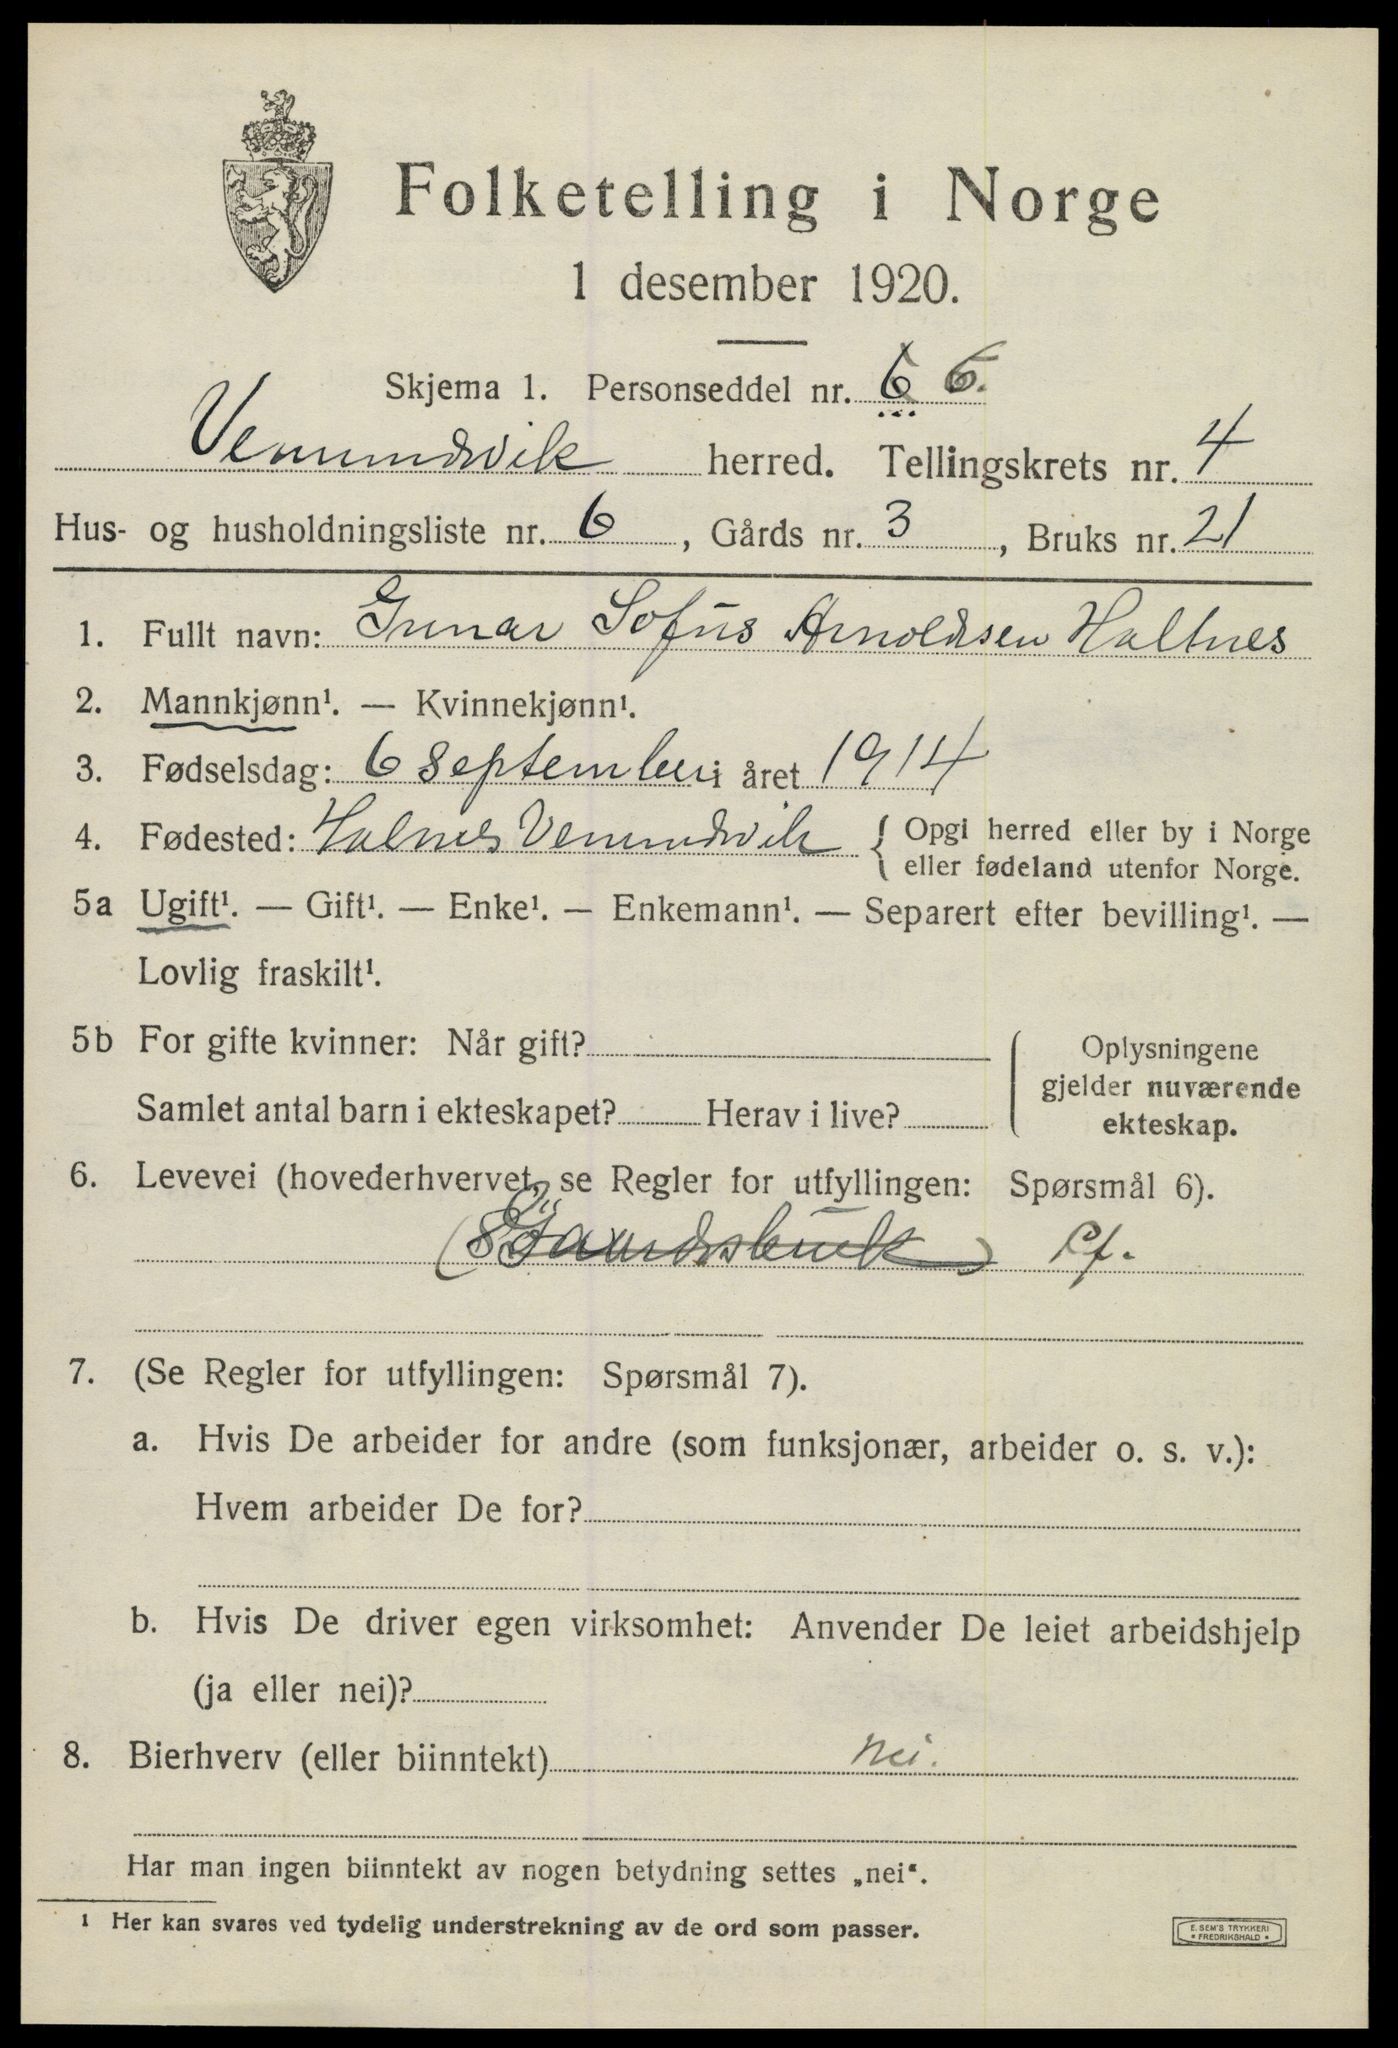 Folketelling i Norge
1 desember 1920.
Skjema 1. Personseddel nr. 6 6.
Vemundvik herred. Tellingskrets nr. 4
Hus- og husholdningsliste nr. 6, Gårds nr. 3, Bruks nr. 21
1. Fullt navn: Gunar Sofus Arnoldsen Haltnes
2. Mannkjønn¹. — Kvinnekjønn¹.
3. Fødselsdag: 6 September i året 1914
4. Fødested: Halnes Vemundvik { Opgi herred eller by i Norge
eller fødeland utenfor Norge.
5a Ugift¹. — Gift¹. — Enke¹. — Enkemann¹. — Separert efter bevilling¹. —
Lovlig fraskilt¹.
5b For gifte kvinner: Når gift?
Samlet antal barn i ekteskapet? Herav i live?
Oplysningene
gjelder nuværende
ekteskap.
6. Levevei (hovederhvervet, se Regler for utfyllingen: Spørsmål 6).
7. (Se Regler for utfyllingen: Spørsmål 7).
a. Hvis De arbeider for andre (som funksjonær, arbeider o. s. v.):
Hvem arbeider De for?
b. Hvis De driver egen virksomhet: Anvender De leiet arbeidshjelp
(ja eller nei)?
8. Bierhverv (eller biinntekt) nei.
Har man ingen biinntekt av nogen betydning settes „nei“.
¹ Her kan svares ved tydelig understrekning av de ord som passer.
E. SEM'S TRYKKERI
• FREDRIKSHALD •